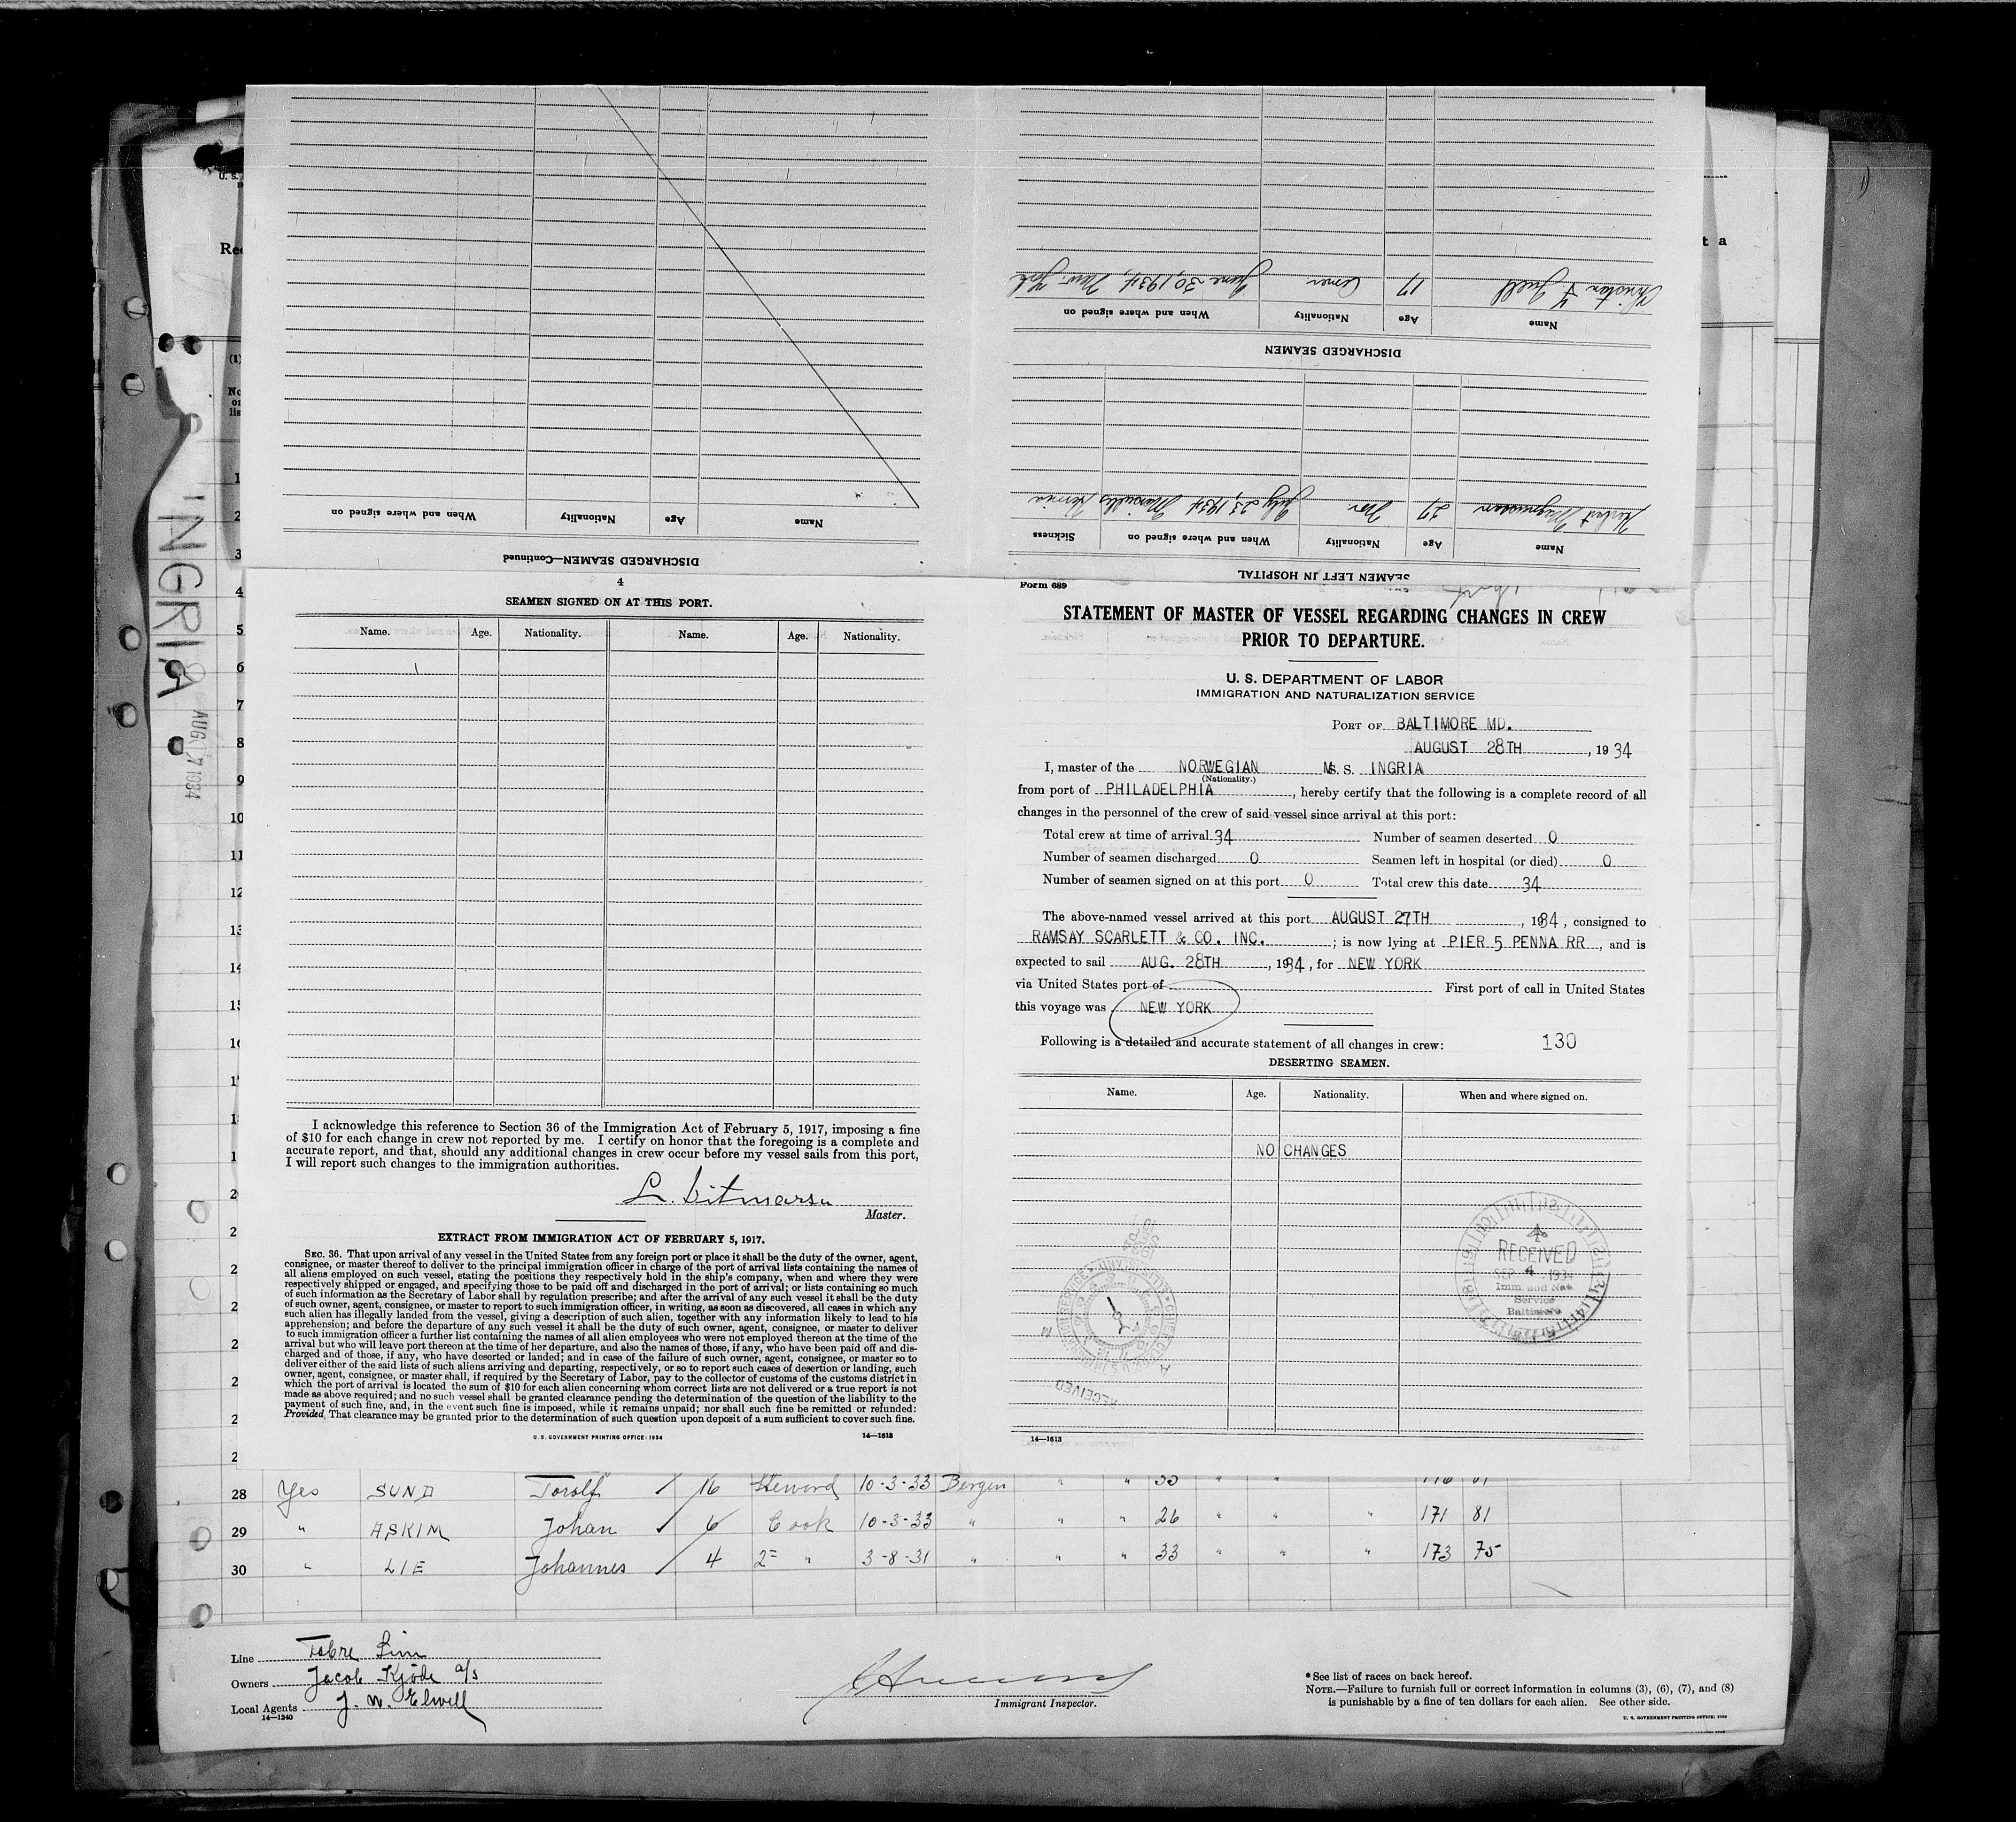 U. S.
Re
t a
(1)
INGRIA
AUG 17 1934
DISCHARGED SEAMEN—Continued
Name
Age
Nationality
When and where signed on
SEAMEN LEFT IN HOSPITAL
Name
Age
Nationality
When and where signed on
Sickness
Herbert Magnussen 27 Nor July 23, 1934 Marseilles Hernia
DISCHARGED SEAMEN
Name
Age
Nationality
When and where signed on
Christian F Juell 17 Amer. June 30, 1934, New York
4
SEAMEN SIGNED ON AT THIS PORT.
Name. Age. Nationality. Name. Age. Nationality.
I acknowledge this reference to Section 36 of the Immigration Act of February 5, 1917, imposing a fine
of $10 for each change in crew not reported by me. I certify on honor that the foregoing is a complete and
accurate report, and that, should any additional changes in crew occur before my vessel sails from this port,
I will report such changes to the immigration authorities.
Master.
EXTRACT FROM IMMIGRATION ACT OF FEBRUARY 5, 1917.
SEC. 36. That upon arrival of any vessel in the United States from any foreign port or place it shall be the duty of the owner, agent,
consignee, or master thereof to deliver to the principal immigration officer in charge of the port of arrival lists containing the names of
all aliens employed on such vessel, stating the positions they respectively hold in the ship's company, when and where they were
respectively shipped or engaged, and specifying those to be paid off and discharged in the port of arrival; or lists containing so much
of such information as the Secretary of Labor shall by regulation prescribe; and after the arrival of any such vessel it shall be the duty
of such owner, agent, consignee, or master to report to such immigration officer, in writing, as soon as discovered, all cases in which any
such alien has illegally landed from the vessel, giving a description of such alien, together with any information likely to lead to his
apprehension; and before the departure of any such vessel it shall be the duty of such owner, agent, consignee, or master to deliver
to such immigration officer a further list containing the names of all alien employees who were not employed thereon at the time of the
arrival but who will leave port thereon at the time of her departure, and also the names of those, if any, who have been paid off and dis-
charged and of those, if any, who have deserted or landed; and in case of the failure of such owner, agent, consignee, or master so to
deliver either of the said lists of such aliens arriving and departing, respectively, or so to report such cases of desertion or landing, such
owner, agent, consignee, or master shall, if required by the Secretary of Labor, pay to the collector of customs of the customs district in
which the port of arrival is located the sum of $10 for each alien concerning whom correct lists are not delivered or a true report is not
made as above required; and no such vessel shall be granted clearance pending the determination of the question of the liability to the
payment of such fine, and, in the event such fine is imposed, while it remains unpaid; nor shall such fine be remitted or refunded:
Provided, That clearance may be granted prior to the determination of such question upon deposit of a sum sufficient to cover such fine.
U. S. GOVERNMENT PRINTING OFFICE: 1934 14—1613
Form 689
STATEMENT OF MASTER OF VESSEL REGARDING CHANGES IN CREW
PRIOR TO DEPARTURE.
U. S. DEPARTMENT OF LABOR
IMMIGRATION AND NATURALIZATION SERVICE
PORT OF BALTIMORE MD.
AUGUST 28TH, 1934
I, master of the NORWEGIAN M.S. S. INGRIA
(Nationality.)
from port of PHILADELPHIA, hereby certify that the following is a complete record of all
changes in the personnel of the crew of said vessel since arrival at this port:
Total crew at time of arrival 34 Number of seamen deserted 0
Number of seamen discharged 0 Seamen left in hospital (or died) 0
Number of seamen signed on at this port 0 Total crew this date 34
The above-named vessel arrived at this port AUGUST 27TH, 1934, consigned to
RAMSAY SCARLETT & CO. INC.; is now lying at PIER 5 PENNA RR, and is
expected to sail AUG. 28TH, 1934, for NEW YORK
via United States port of First port of call in United States
this voyage was NEW YORK
Following is a detailed and accurate statement of all changes in crew: 130
DESERTING SEAMEN.
Name. Age. Nationality. When and where signed on.
NO CHANGES
RECEIVED
SEP 4 1934
Imm. and Nat.
Service
Baltimore
RECEIVED
14—1613
28 Yes SUND Torolf 16 Steward 10-3-33 Bergen " " 33 " "
29 " ASKIM Johan 6 Cook 10-3-33 " " " 26 " " " 171 81
30 " LIE Johannes 4 2= " 3-8-31 " " " 33 " " " 173 75
Line Fabre Line
Owners Jacob Kjöde a/s
Local Agents J. W. Elwell
14—1240
Immigrant Inspector.
*See list of races on back hereof.
NOTE.—Failure to furnish full or correct information in columns (3), (6), (7), and (8)
is punishable by a fine of ten dollars for each alien. See other side.